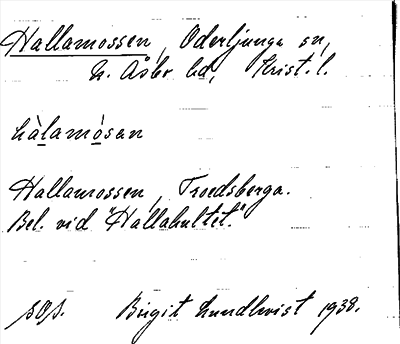 Hallamossen, Oderljunga sn,
N. Åsbo hd, Krist. l.
hàlamòsan
Hallamossen, Troedsberga.
Bel. vid "Hallahultet."
sOs. Birgit Lundkvist 1938.